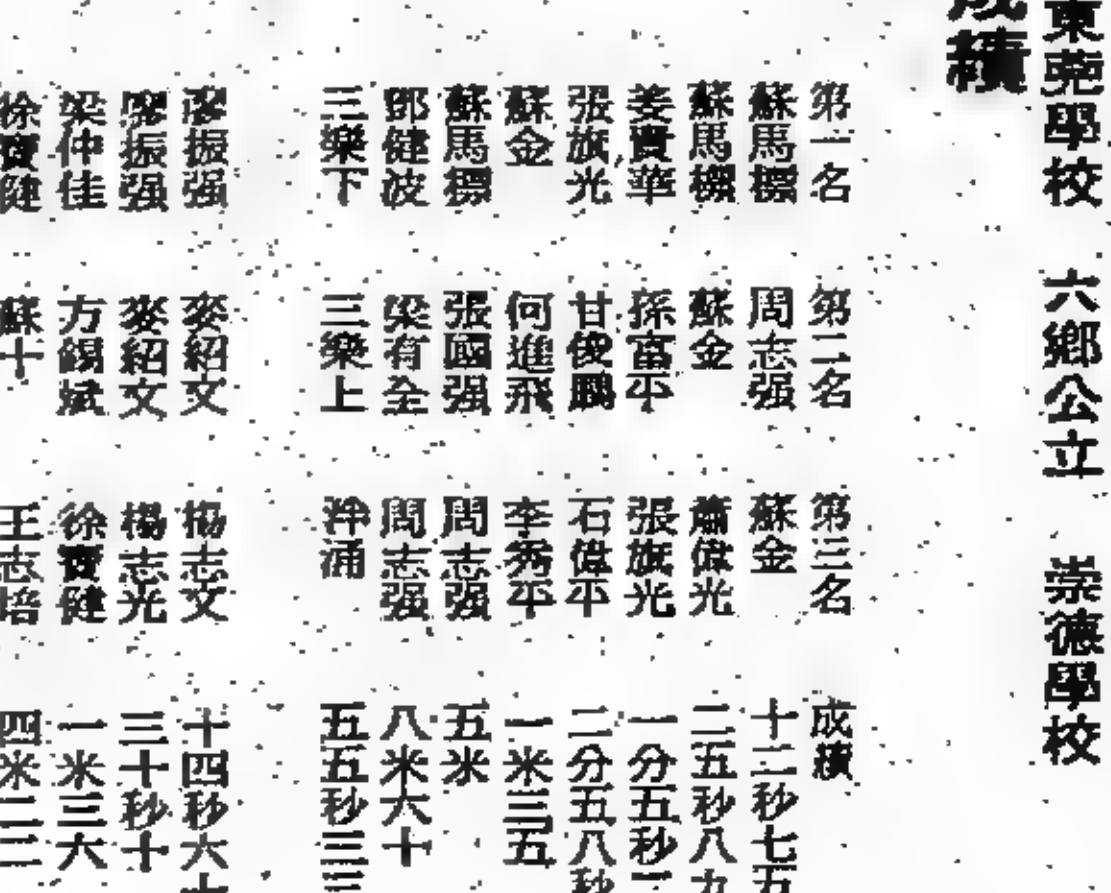 東莞學校 六鄉公立 崇德學校
成績
第一名 第二名 第三名 成績
蘇馬標 周志强 蘇金 十二秒七五
蘇馬標 蘇金 蕭偉光 二五秒八九
姜寶華 孫富平 張旗光 一分五秒
張旗光 甘俊鵬 石偉平 二分五八秒
蘇金 何進飛 李秀平 一米三五
蘇馬標 張國强 周志强 五米
鄧健波 梁有全 周志强 八米六十
三樂下 三樂上 泮涌 五五秒三三
廖振强 麥紹文 楊志文 十四秒六十
廖振强 麥紹文 楊志光 三十秒十
梁仲佳 方錫斌 徐寶健 一米三六
徐寶健 蘇十 王志培 四米二二